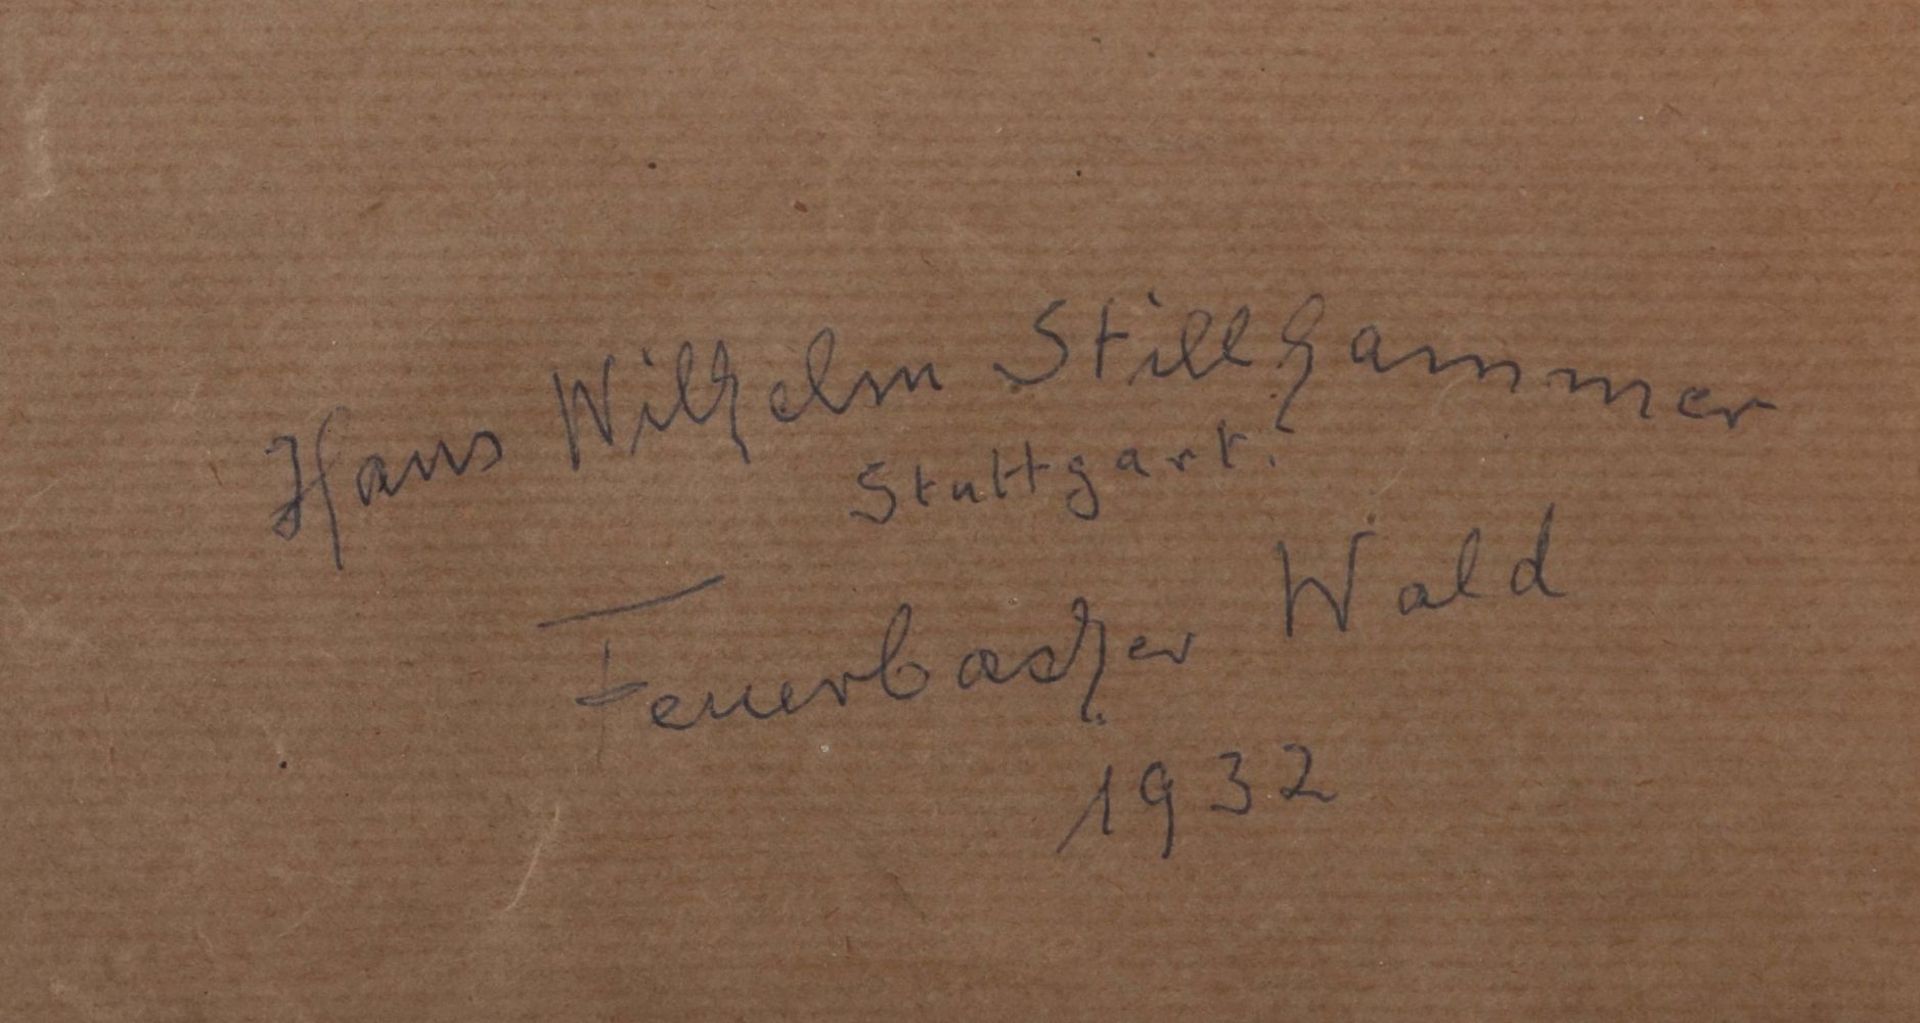 Hans Wilhelm Stillhammer
Stuttgart.
Feuerbacher Wald
1932